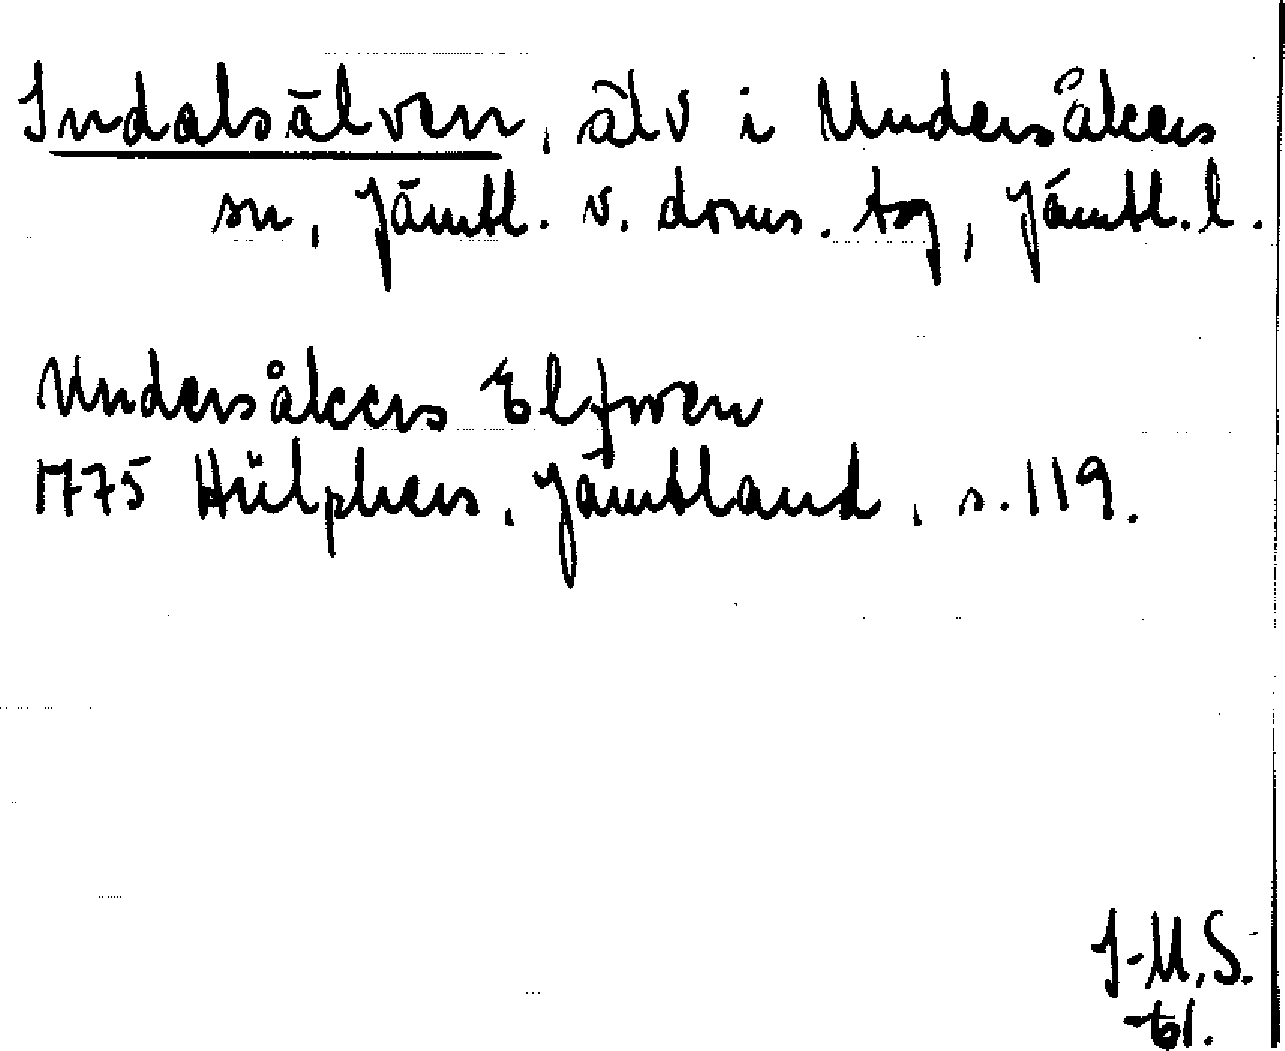 Indalsälven, älv i Undersåkers
sn, Jämtl. v. doms. tg, Jämtl. l.
Undersåkers Elfwen
1775 Hülphers, Jämtland, s. 119.
I-M.S.
-61.